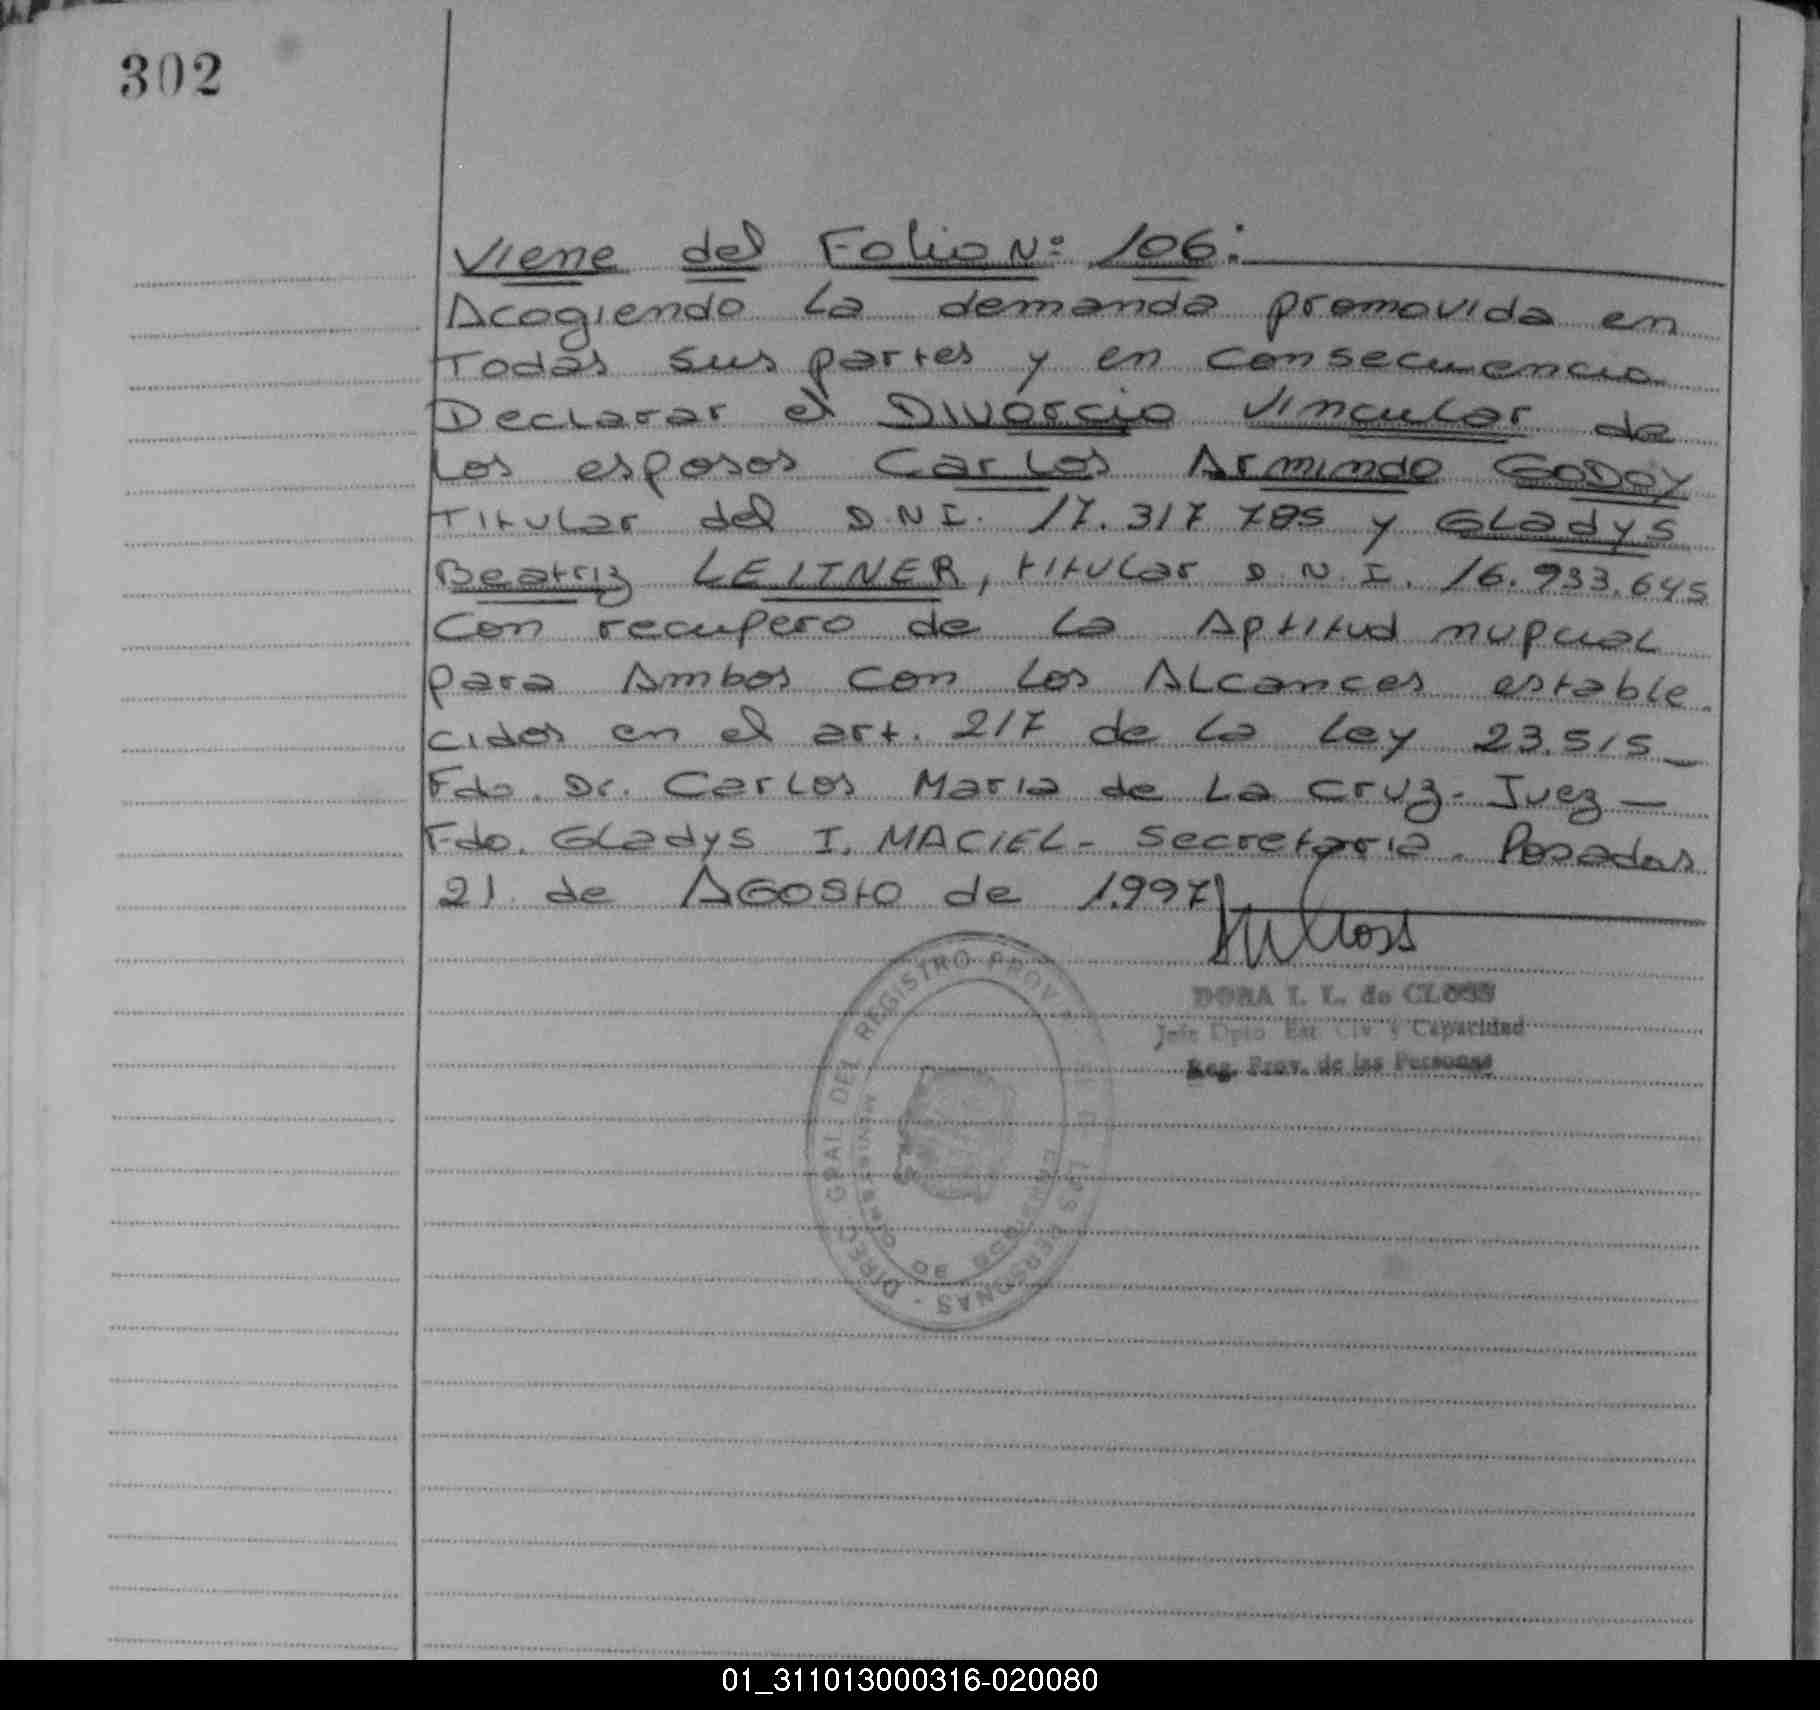 302
Viene del Folio Nº 106:
Acogiendo la demanda promovida en
Todas sus partes y en consecuencia
Declarar el Divorcio Vincular de
los esposos Carlos Armindo GODOY
Titular del D.N.I. 17.317 785 y GLadys
Beatriz LEITNER, titular D.N.I. 16.933.645
Con recupero de la Aptitud nupcial
para Ambos con los Alcances estable
cidos en el art. 217 de la ley 23.515_
Fdo. Dr. Carlos Maria de la Cruz - Juez -
Fdo. GLadys I. MACIEL - Secretaria. Posadas
21 de AGOSTO de 1.997
DORA I. L. de CLOSS
Jefe Dpto Est Civ y Capacidad
Reg. Prov. de las Personas
DIREC. GRAL DEL REGISTRO PROV. DE LAS PERSONAS
01_311013000316-020080